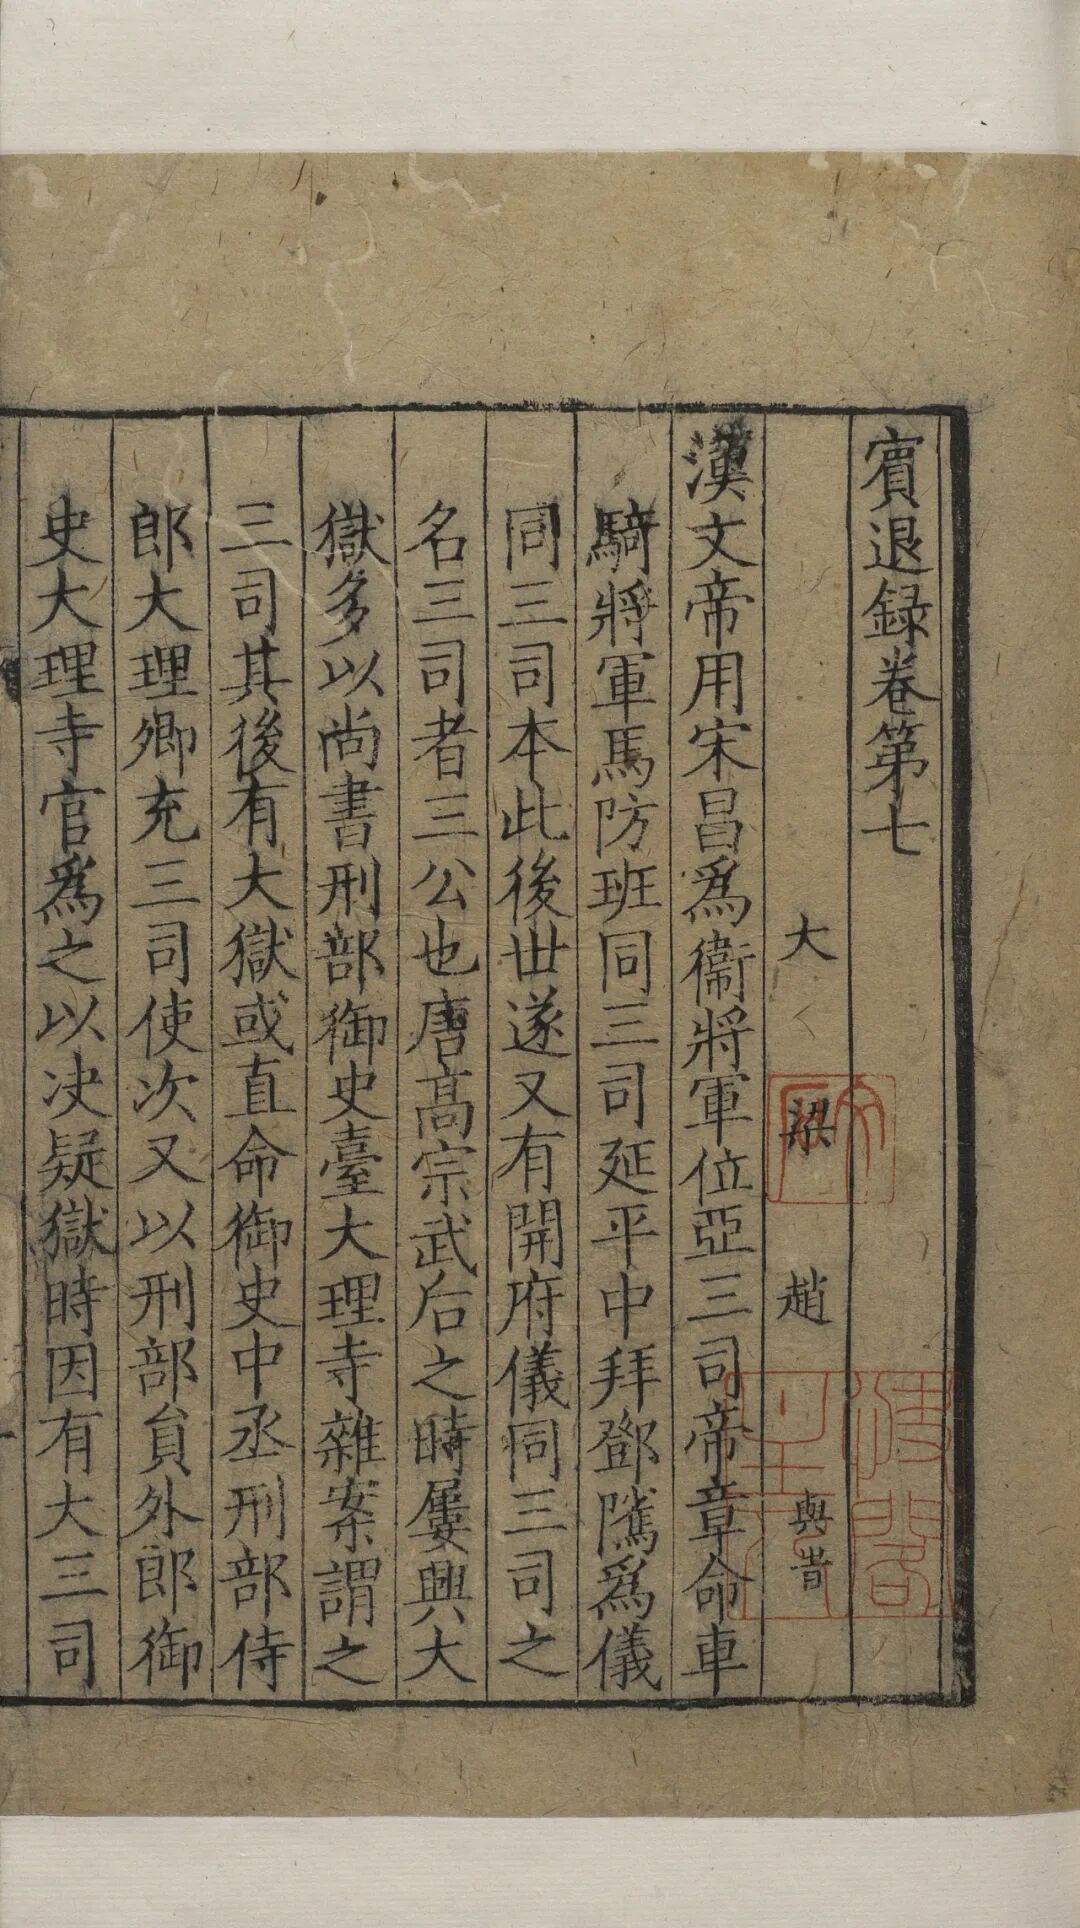 賓退録卷第七
大梁趙與旹
漢文帝用宋昌爲衞將軍位亞三司帝章命車
騎將軍馬防班同三司延平中拜鄧隲爲儀
同三司本此後世遂又有開府儀同三司之
名三司者三公也唐髙宗武后之時屢興大
獄多以尚書刑部御史臺大理寺雜案謂之
三司其後有大獄或直命御史中丞刑部侍
郎大理卿充三司使次又以刑部貟外郎御
史大理寺官爲之以决疑獄時因有大三司